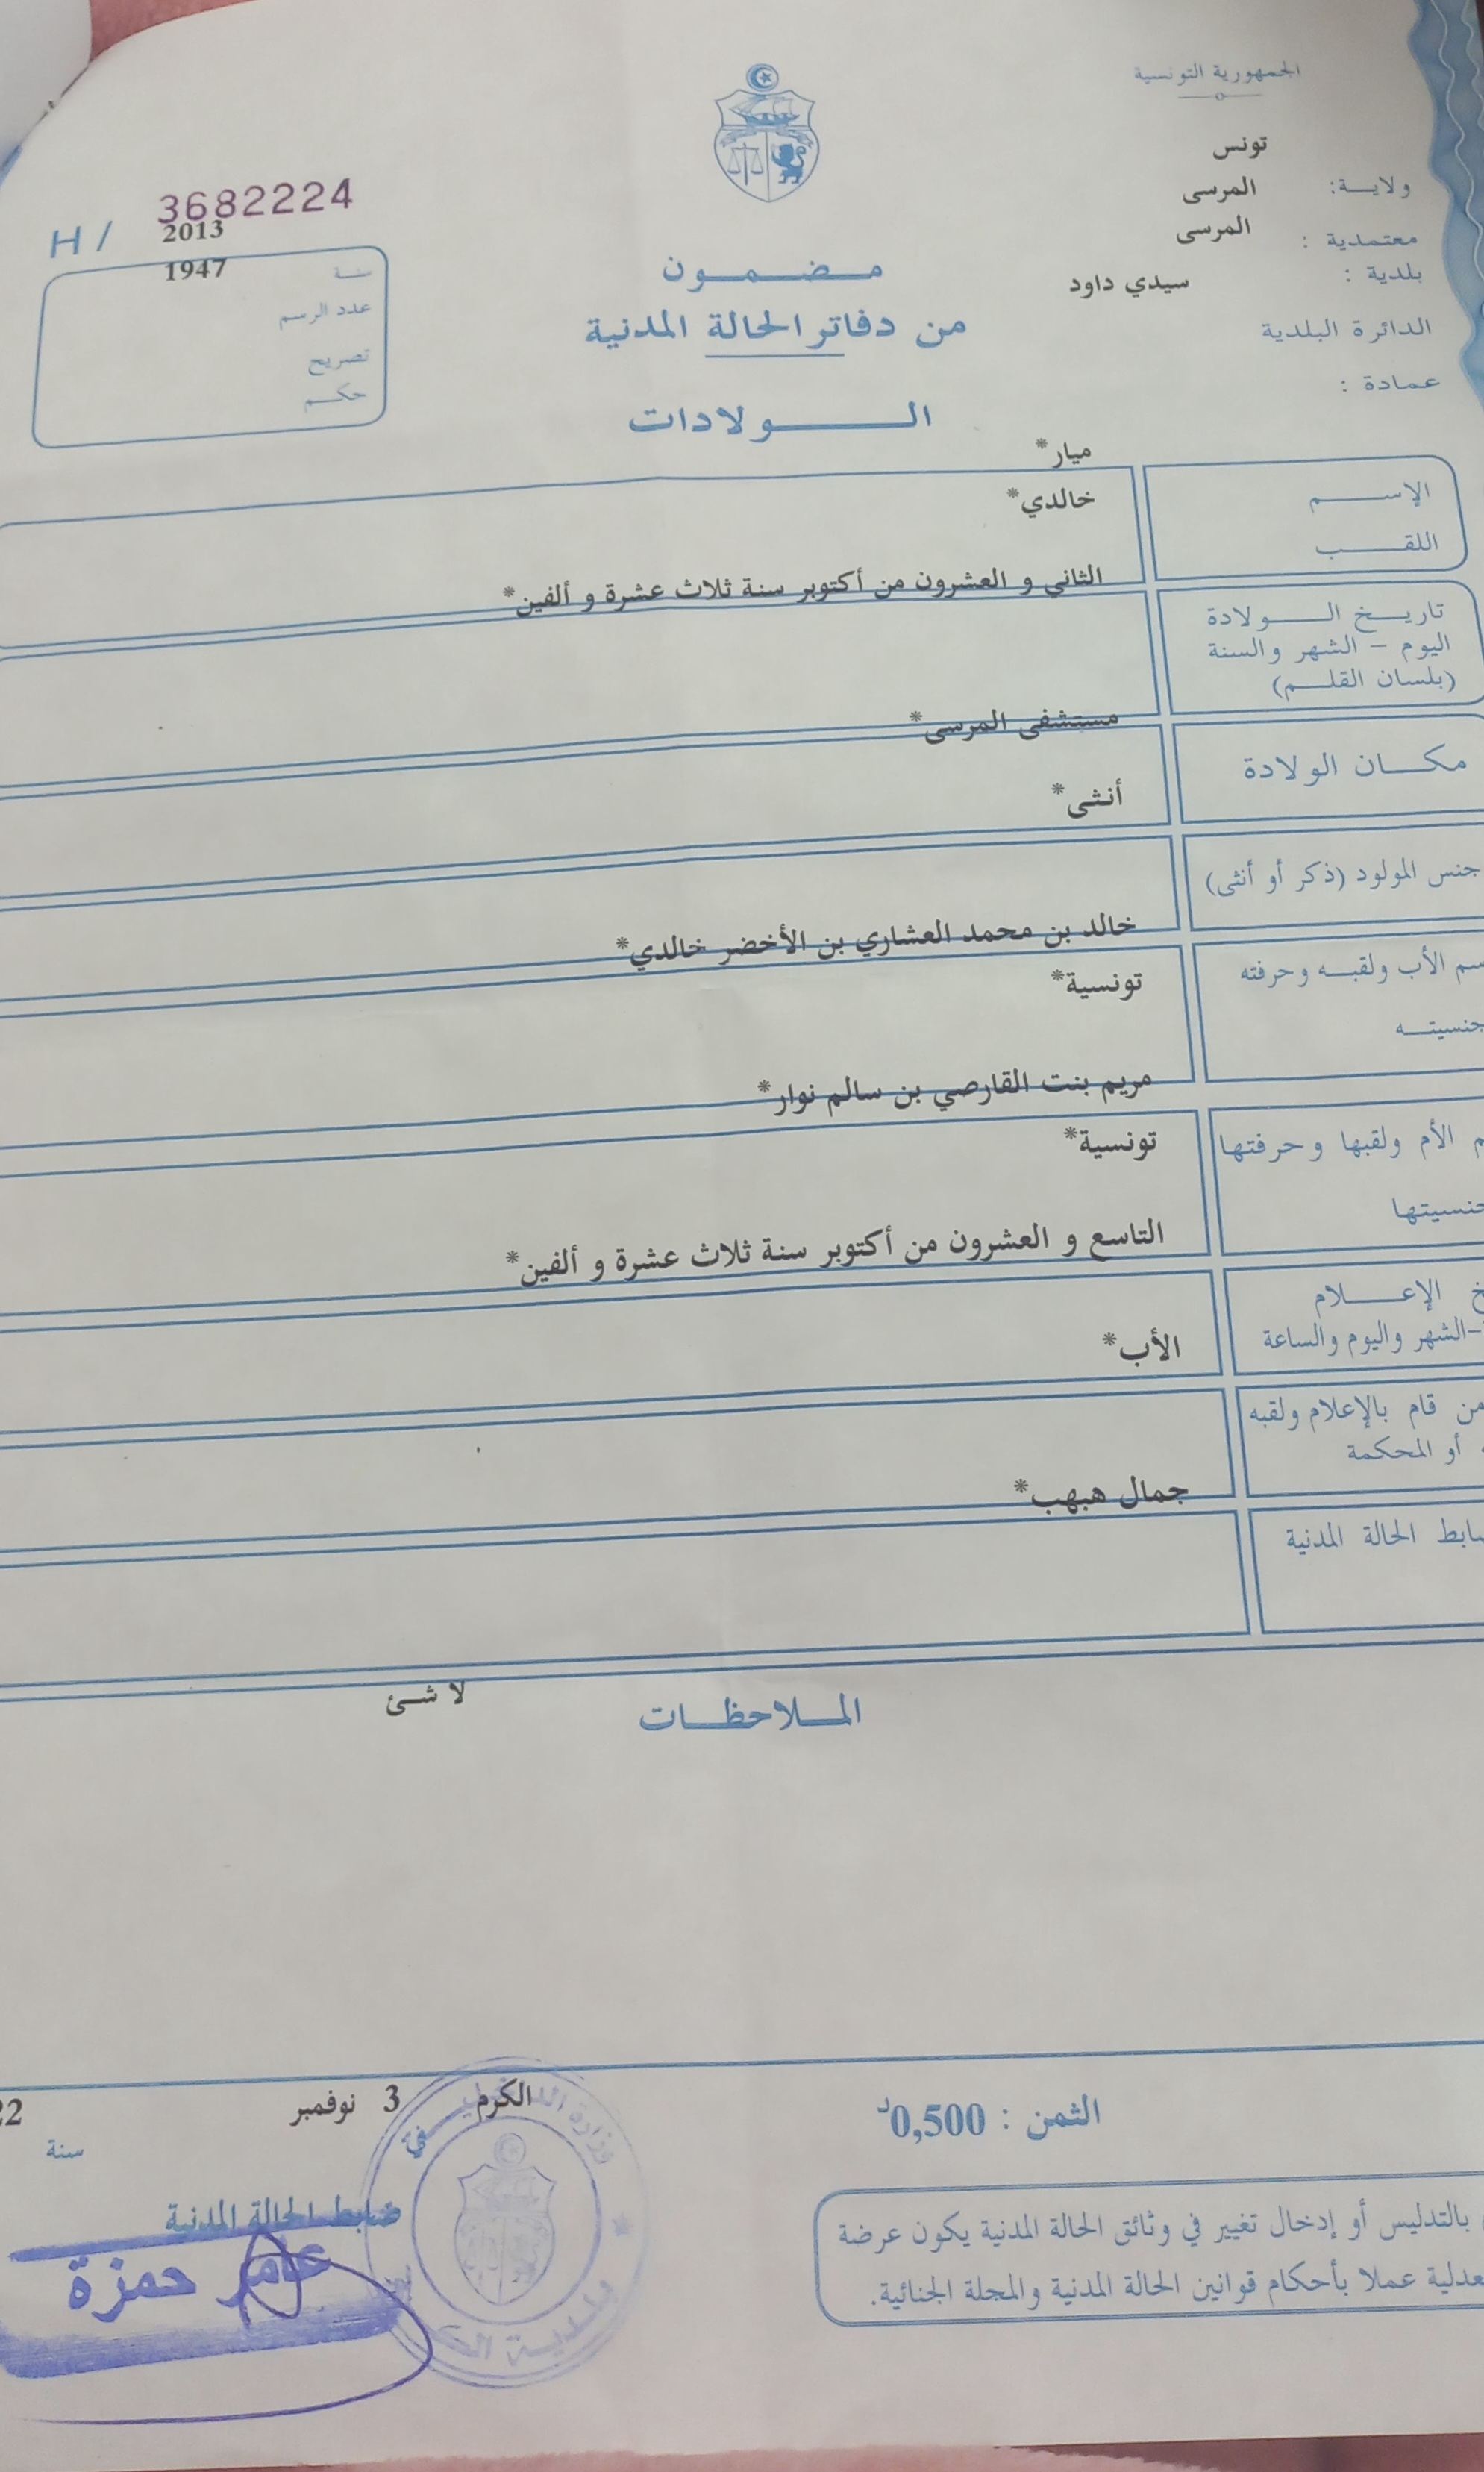 الجمهورية التونسية
تونس
ولاية: المرسى
معتمدية : المرسى
بلدية : سيدي داود
الدائرة البلدية
عمادة :
H / 3682224
2013
1947
سنة
عدد الرسم
تصريح
حكم
مضمون
من دفاتر الحالة المدنية
الولادات
ميار*
الإسم
خالدي*
اللقب
الثاني و العشرون من أكتوبر سنة ثلاث عشرة و ألفين*
تاريخ الولادة
اليوم - الشهر والسنة
(بلسان القلم)
مستشفى المرسى*
مكان الولادة
أنثى*
جنس المولود (ذكر أو أنثى)
خالد بن محمد العشاري بن الأخضر خالدي*
الأب ولقبه وحرفته
تونسية*
جنسيته
مريم بنت القارصي بن سالم نوار*
الأم ولقبها وحرفتها
تونسية*
جنسيتها
التاسع و العشرون من أكتوبر سنة ثلاث عشرة و ألفين*
الإعلام
-الشهر واليوم والساعة
الأب*
من قام بالإعلام ولقبه
أو المحكمة
جمال هبهب*
الحالة المدنية
الملاحظات
لا شئ
الثمن : 0,500د
الكرم 3 نوفمبر 22
سنة
ضابط الحالة المدنية
عامر حمزة
بلدية
بالتدليس أو إدخال تغيير في وثائق الحالة المدنية يكون عرضة
عملا بأحكام قوانين الحالة المدنية والمجلة الجنائية.